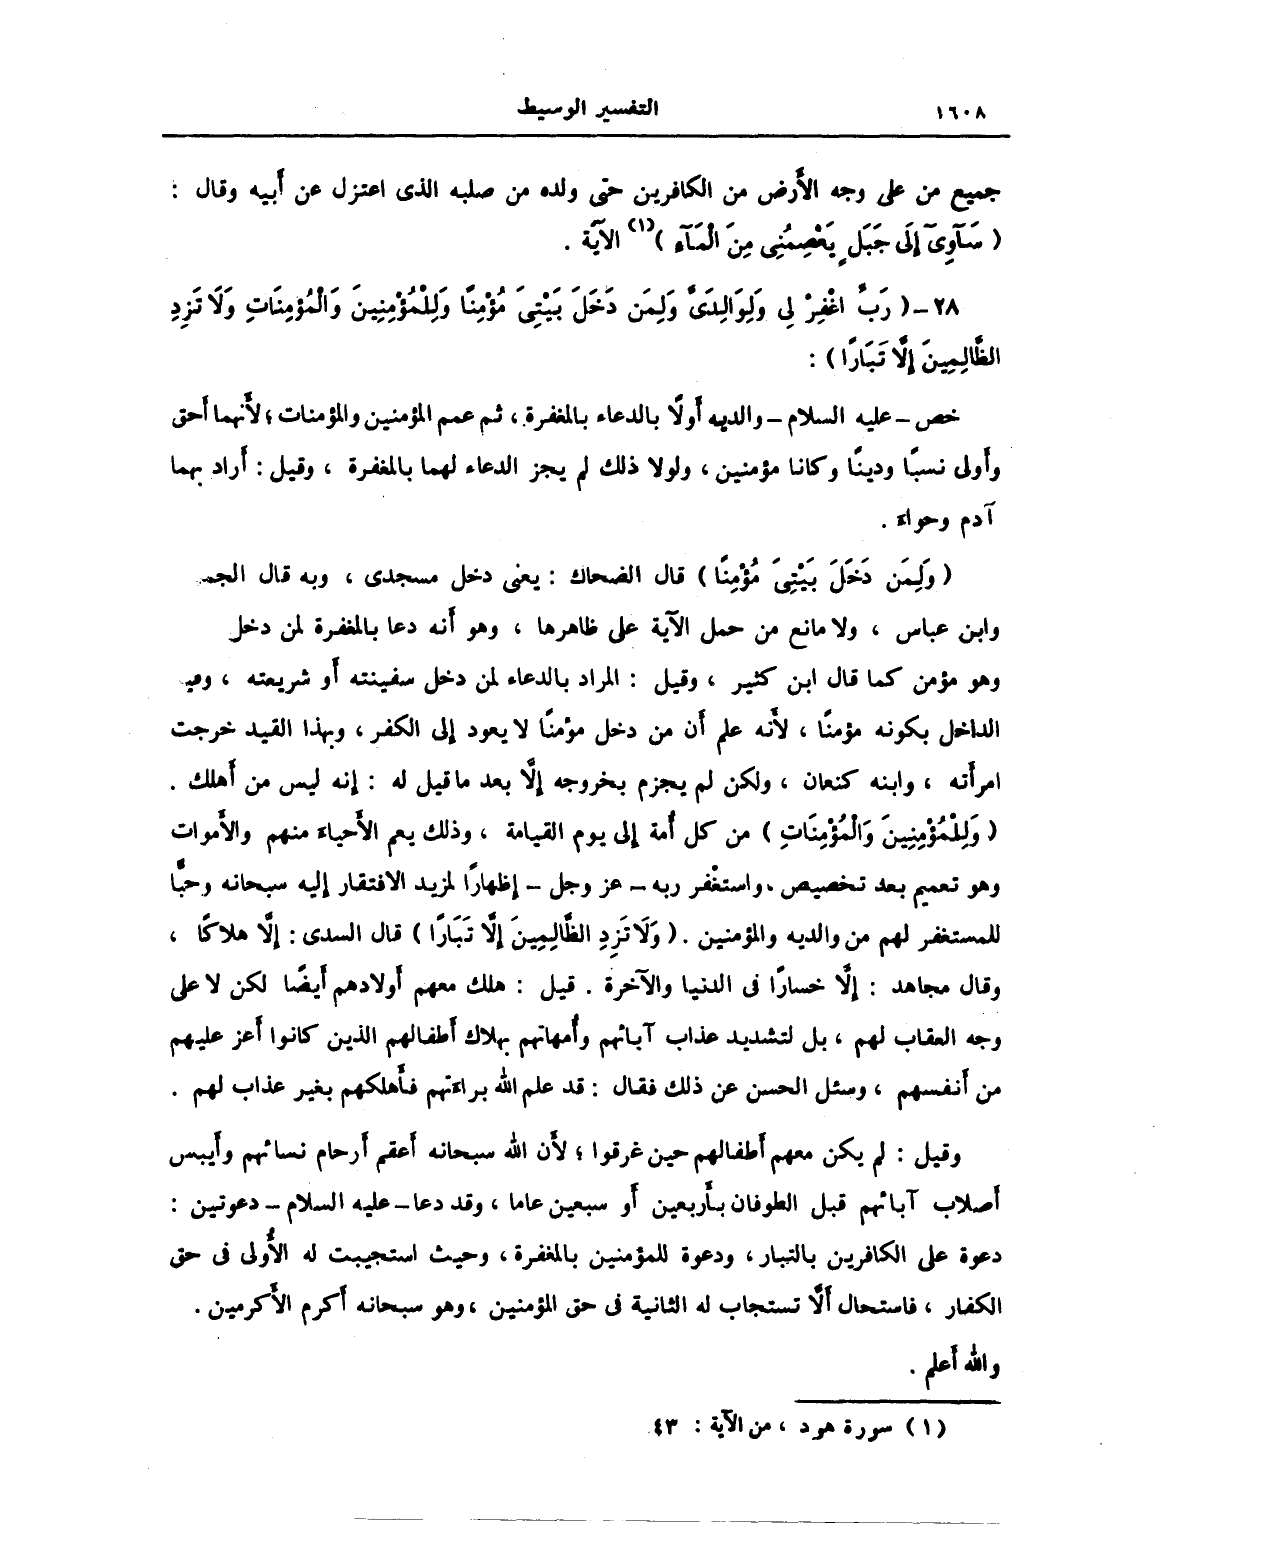 ١٦٠٨ التفسير الوسيط
جميع من على وجه الأرض من الكافرين حتى ولده من صلبه الذى اعتزل عن أبيه وقال :
( سَآوِىٓ إِلَى جَبَلٍ يَعْصِمُنِى مِنَ الْمَآءِ )(١) الآية .
٢٨ - ( رَبِّ اغْفِرْ لِى وَلِوَالِدَىَّ وَلِمَن دَخَلَ بَيْتِىَ مُؤْمِنًا وَلِلْمُؤْمِنِينَ وَالْمُؤْمِنَاتِ وَلَا تَزِدِ
الظَّالِمِينَ إِلَّا تَبَارًا ) :
خص - عليه السلام - والديه أولًا بالدعاء بالمغفرة ، ثم عمم المؤمنين والمؤمنات ؛ لأنهما أحق
وأولى نسبًا ودينًا وكانا مؤمنين ، ولولا ذلك لم يجز الدعاء لهما بالمغفرة ، وقيل : أراد بهما
آدم وحواء .
( وَلِمَن دَخَلَ بَيْتِىَ مُؤْمِنًا ) قال الضحاك : يعنى دخل مسجدى ، وبه قال
وابن عباس ، ولا مانع من حمل الآية على ظاهرها ، وهو أنه دعا بالمغفرة لمن دخل
وهو مؤمن كما قال ابن كثير ، وقيل : المراد بالدعاء لمن دخل سفينته أو شريعته ،
الداخل بكونه مؤمنًا ، لأنه علم أن من دخل مؤمنًا لا يعود إلى الكفر ، وبهذا القيد خرجت
امرأته ، وابنه كنعان ، ولكن لم يجزم بخروجه إلَّا بعد ما قيل له : إنه ليس من أهلك .
( وَلِلْمُؤْمِنِينَ وَالْمُؤْمِنَاتِ ) من كل أُمة إلى يوم القيامة ، وذلك يعم الأحياء منهم والأموات
وهو تعميم بعد تخصيص ، واستغفر ربه - عز وجل - إظهارًا لمزيد الافتقار إليه سبحانه وحبًّا
للمستغفر لهم من والديه والمؤمنين . ( وَلَا تَزِدِ الظَّالِمِينَ إِلَّا تَبَارًا ) قال السدى : إلَّا هلاكًا ،
وقال مجاهد : إلَّا خسارًا فى الدنيا والآخرة . قيل : هلك معهم أولادهم أيضًا لكن لا على
وجه العقاب لهم ، بل لتشديد عذاب آبائهم وأُمهاتهم بهلاك أطفالهم الذين كانوا أعز عليهم
من أنفسهم ، وسئل الحسن عن ذلك فقال : قد علم الله براءتهم فأهلكهم بغير عذاب لهم .
وقيل : لم يكن معهم أطفالهم حين غرقوا ؛ لأن الله سبحانه أعقم أرحام نسائهم وأيبس
أصلاب آبائهم قبل الطوفان بأربعين أو سبعين عاما ، وقد دعا - عليه السلام - دعوتين :
دعوة على الكافرين بالتبار ، ودعوة للمؤمنين بالمغفرة ، وحيث استجيبت له الأُولى فى حق
الكفار ، فاستحال ألَّا تستجاب له الثانية فى حق المؤمنين ، وهو سبحانه أكرم الأكرمين .
والله أعلم .
(١) سورة هود ، من الآية : ٤٣